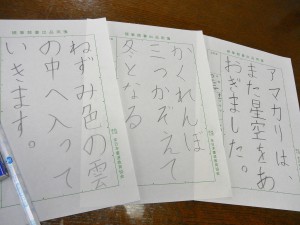 アマカリは、
また星空をあ
おぎました。
かくれんぼ
三つかぞえて
冬となる
ねずみ色の雲
の中へ入って
いきます。